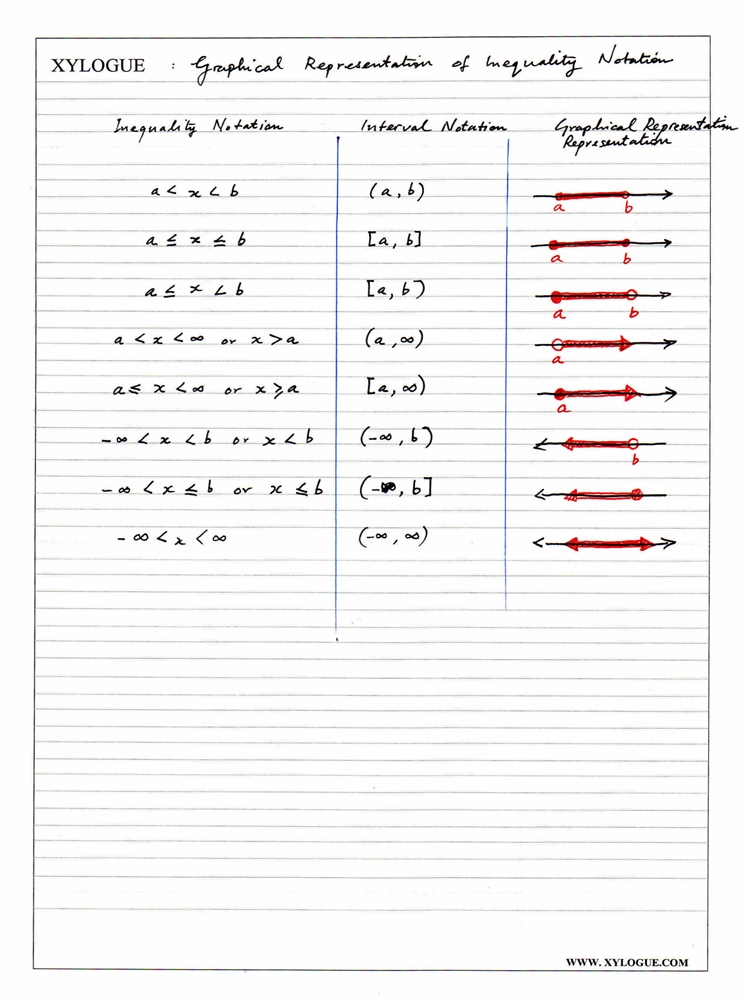 XYLOGUE : Graphical Representation of Inequality Notation
Inequality Notation Interval Notation Graphical Representation
Representation
a < x < b (a, b)
a b
a ≤ x ≤ b [a, b]
a b
a ≤ x < b [a, b)
a b
a < x < ∞ or x > a (a, ∞)
a
a ≤ x < ∞ or x ≥ a [a, ∞)
a
-∞ < x < b or x < b (-∞, b)
b
-∞ < x ≤ b or x ≤ b (-∞, b]
-∞ < x < ∞ (-∞, ∞)
WWW.XYLOGUE.COM